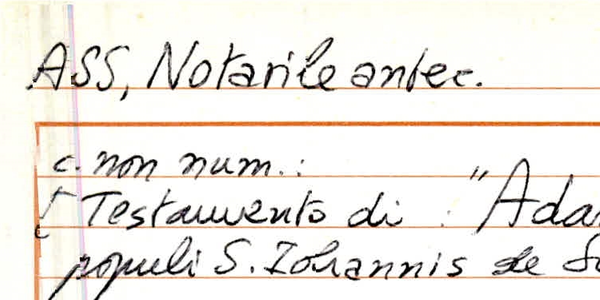 ASS, Notarile antec.
c. non num.:
Testamento di : "Ada
populi S. Iohannis de